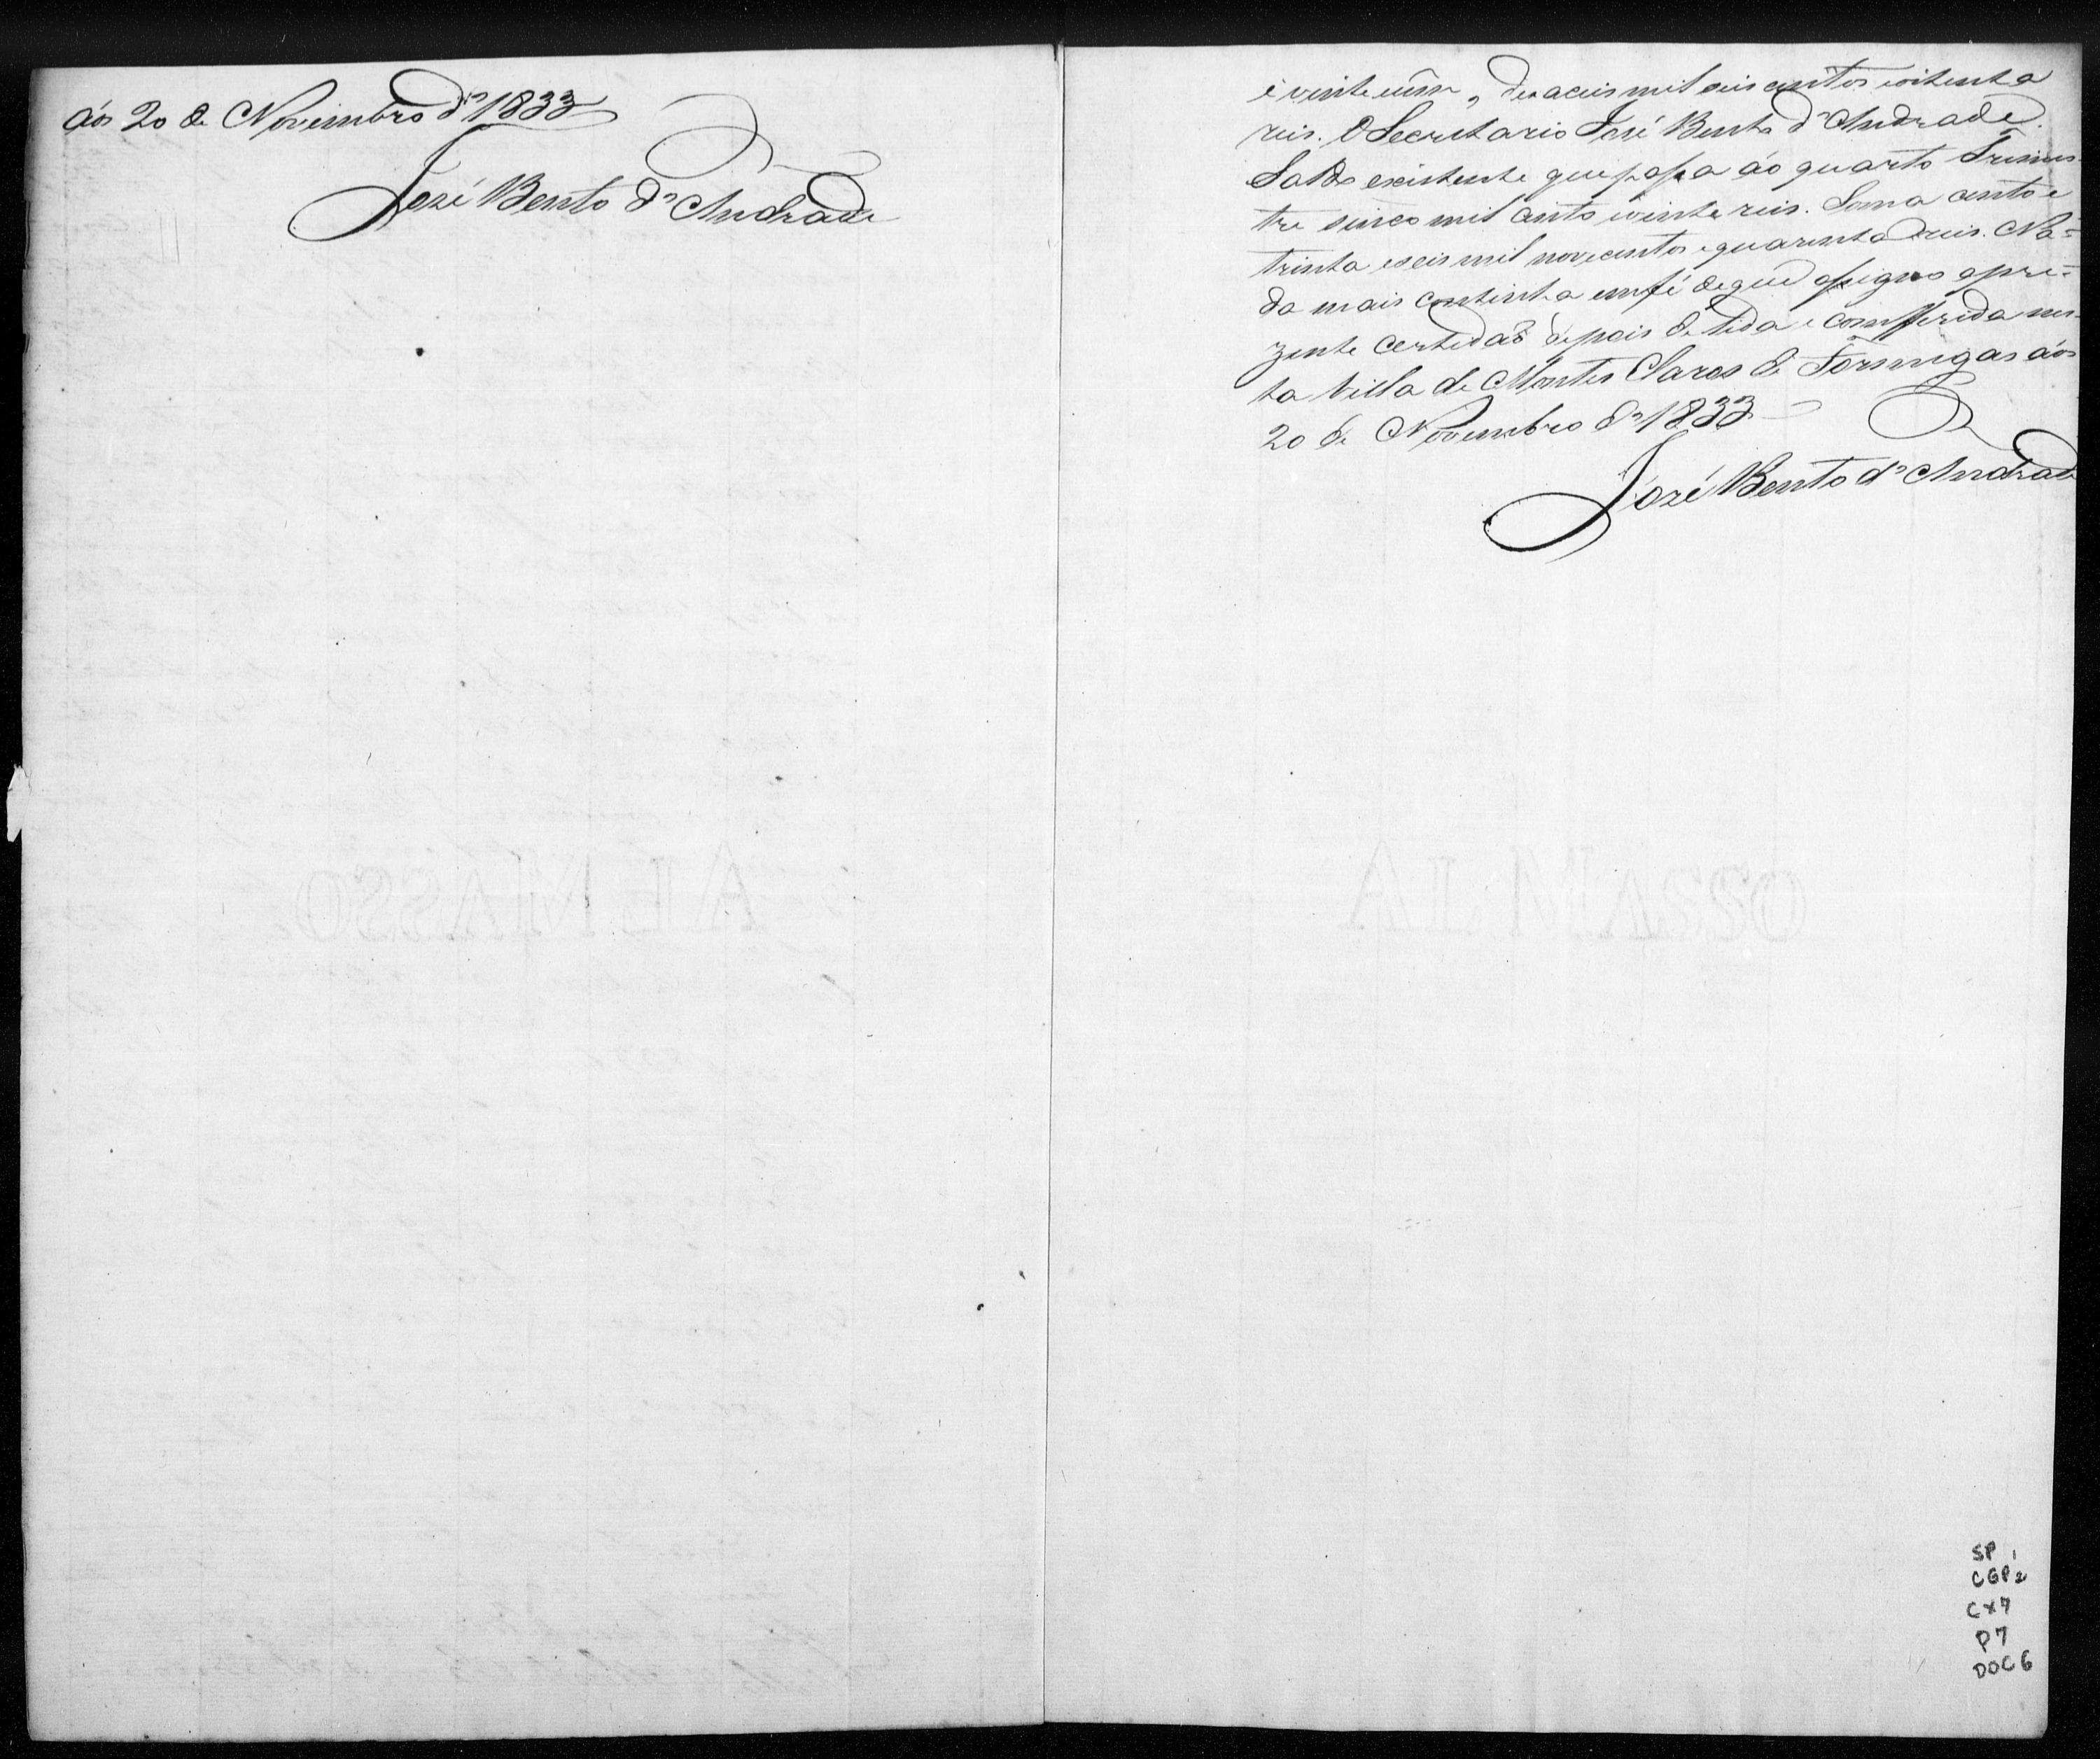 áos 20 de Novembro d'1833
José Bento d'Andrade
e vinte e um, dezaceis mil seis centos e oitenta
reis. O Secretario José Bento d'Andrade.
Saldo existente que passa áo quarto Trimes-
tre sinco mil cento e vinte reis. Soma cento e
trinta e seis mil novecentos e quarenta reis. Na=
da mais continha em fé de que assigno apre=
zente certedaõ depois de lida e comfferida nes-
ta Villa de Montes Claros de Formigas áos
20 de Novembro d'1833
José Bento d'Andrade
ALMASSO
ALMASSO
SP 1
CGP 2
CX 7
P 7
DOC 6